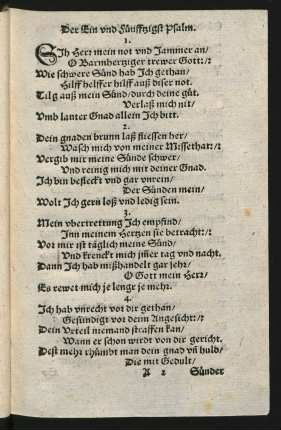 Der Ein vnd Fünfftzigst Psalm.
1.
SIh Herr mein not vnd Jammer an/
O Barmhertziger trewer Gott:/:
Wie schwere Sünd hab Ich gethan/
Hilff helffer hilff auß diser not.
Tilg auß mein Sünd/durch deine güt,
Verlaß mich nit/
Vmb lauter Gnad allein Ich bitt.
2.
Dein gnaden brunn laß fliessen her/
Wasch mich von meiner Missethat:/:
Vergib mir meine Sünde schwer/
Vnd reinig mich mit deiner Gnad.
Ich bin befleckt vnd gar vnrein/
Der Sünden mein/
Wolt Ich gern loß vnd ledig sein.
3.
Mein vbertrettung Ich empfind/
Inn meinem Hertzen sie betracht:/:
Vor mir ist täglich meine Sünd/
Vnd krenckt mich im̃er tag vnd nacht.
Dann Ich hab mißhandelt gar sehr/
O Gott mein Herr/
Es rewet mich je lenge je mehr.
4.
Ich hab vnrecht vor dir gethan/
Gesündigt vor deim Angesicht:/:
Dein Vrteil niemand straffen kan/
Wann er schon wirdt von dir gericht.
Dest mehr rhümbt man dein gnad vn̄ huld/
Die mit Gedult/
A 2 Sünder